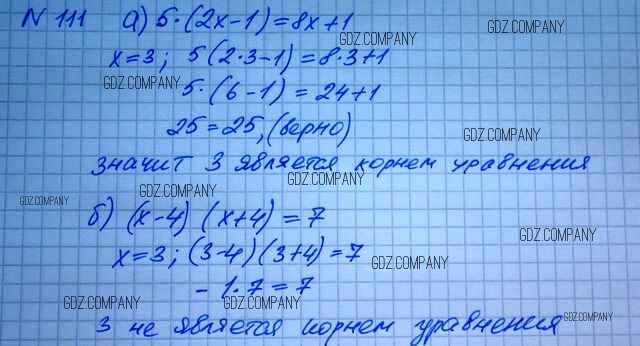 N 111 а) 5·(2x-1)=8x+1
GDZ.COMPANY
GDZ.COMPANY
x=3; 5(2·3-1)=8·3+1
GDZ.COMPANY
5·(6-1)=24+1
25=25, (верно)
GDZ.COMPANY
значит 3 является корнем уравнения
GDZ.COMPANY
GDZ.COMPANY
GDZ.COMPANY
б) (x-4) (x+4) = 7
GDZ.COMPANY
x=3; (3-4) (3+4) = 7
GDZ.COMPANY
-1·7=7
GDZ.COMPANY
GDZ.COMPANY
GDZ.COMPANY
3 не является корнем уравнения